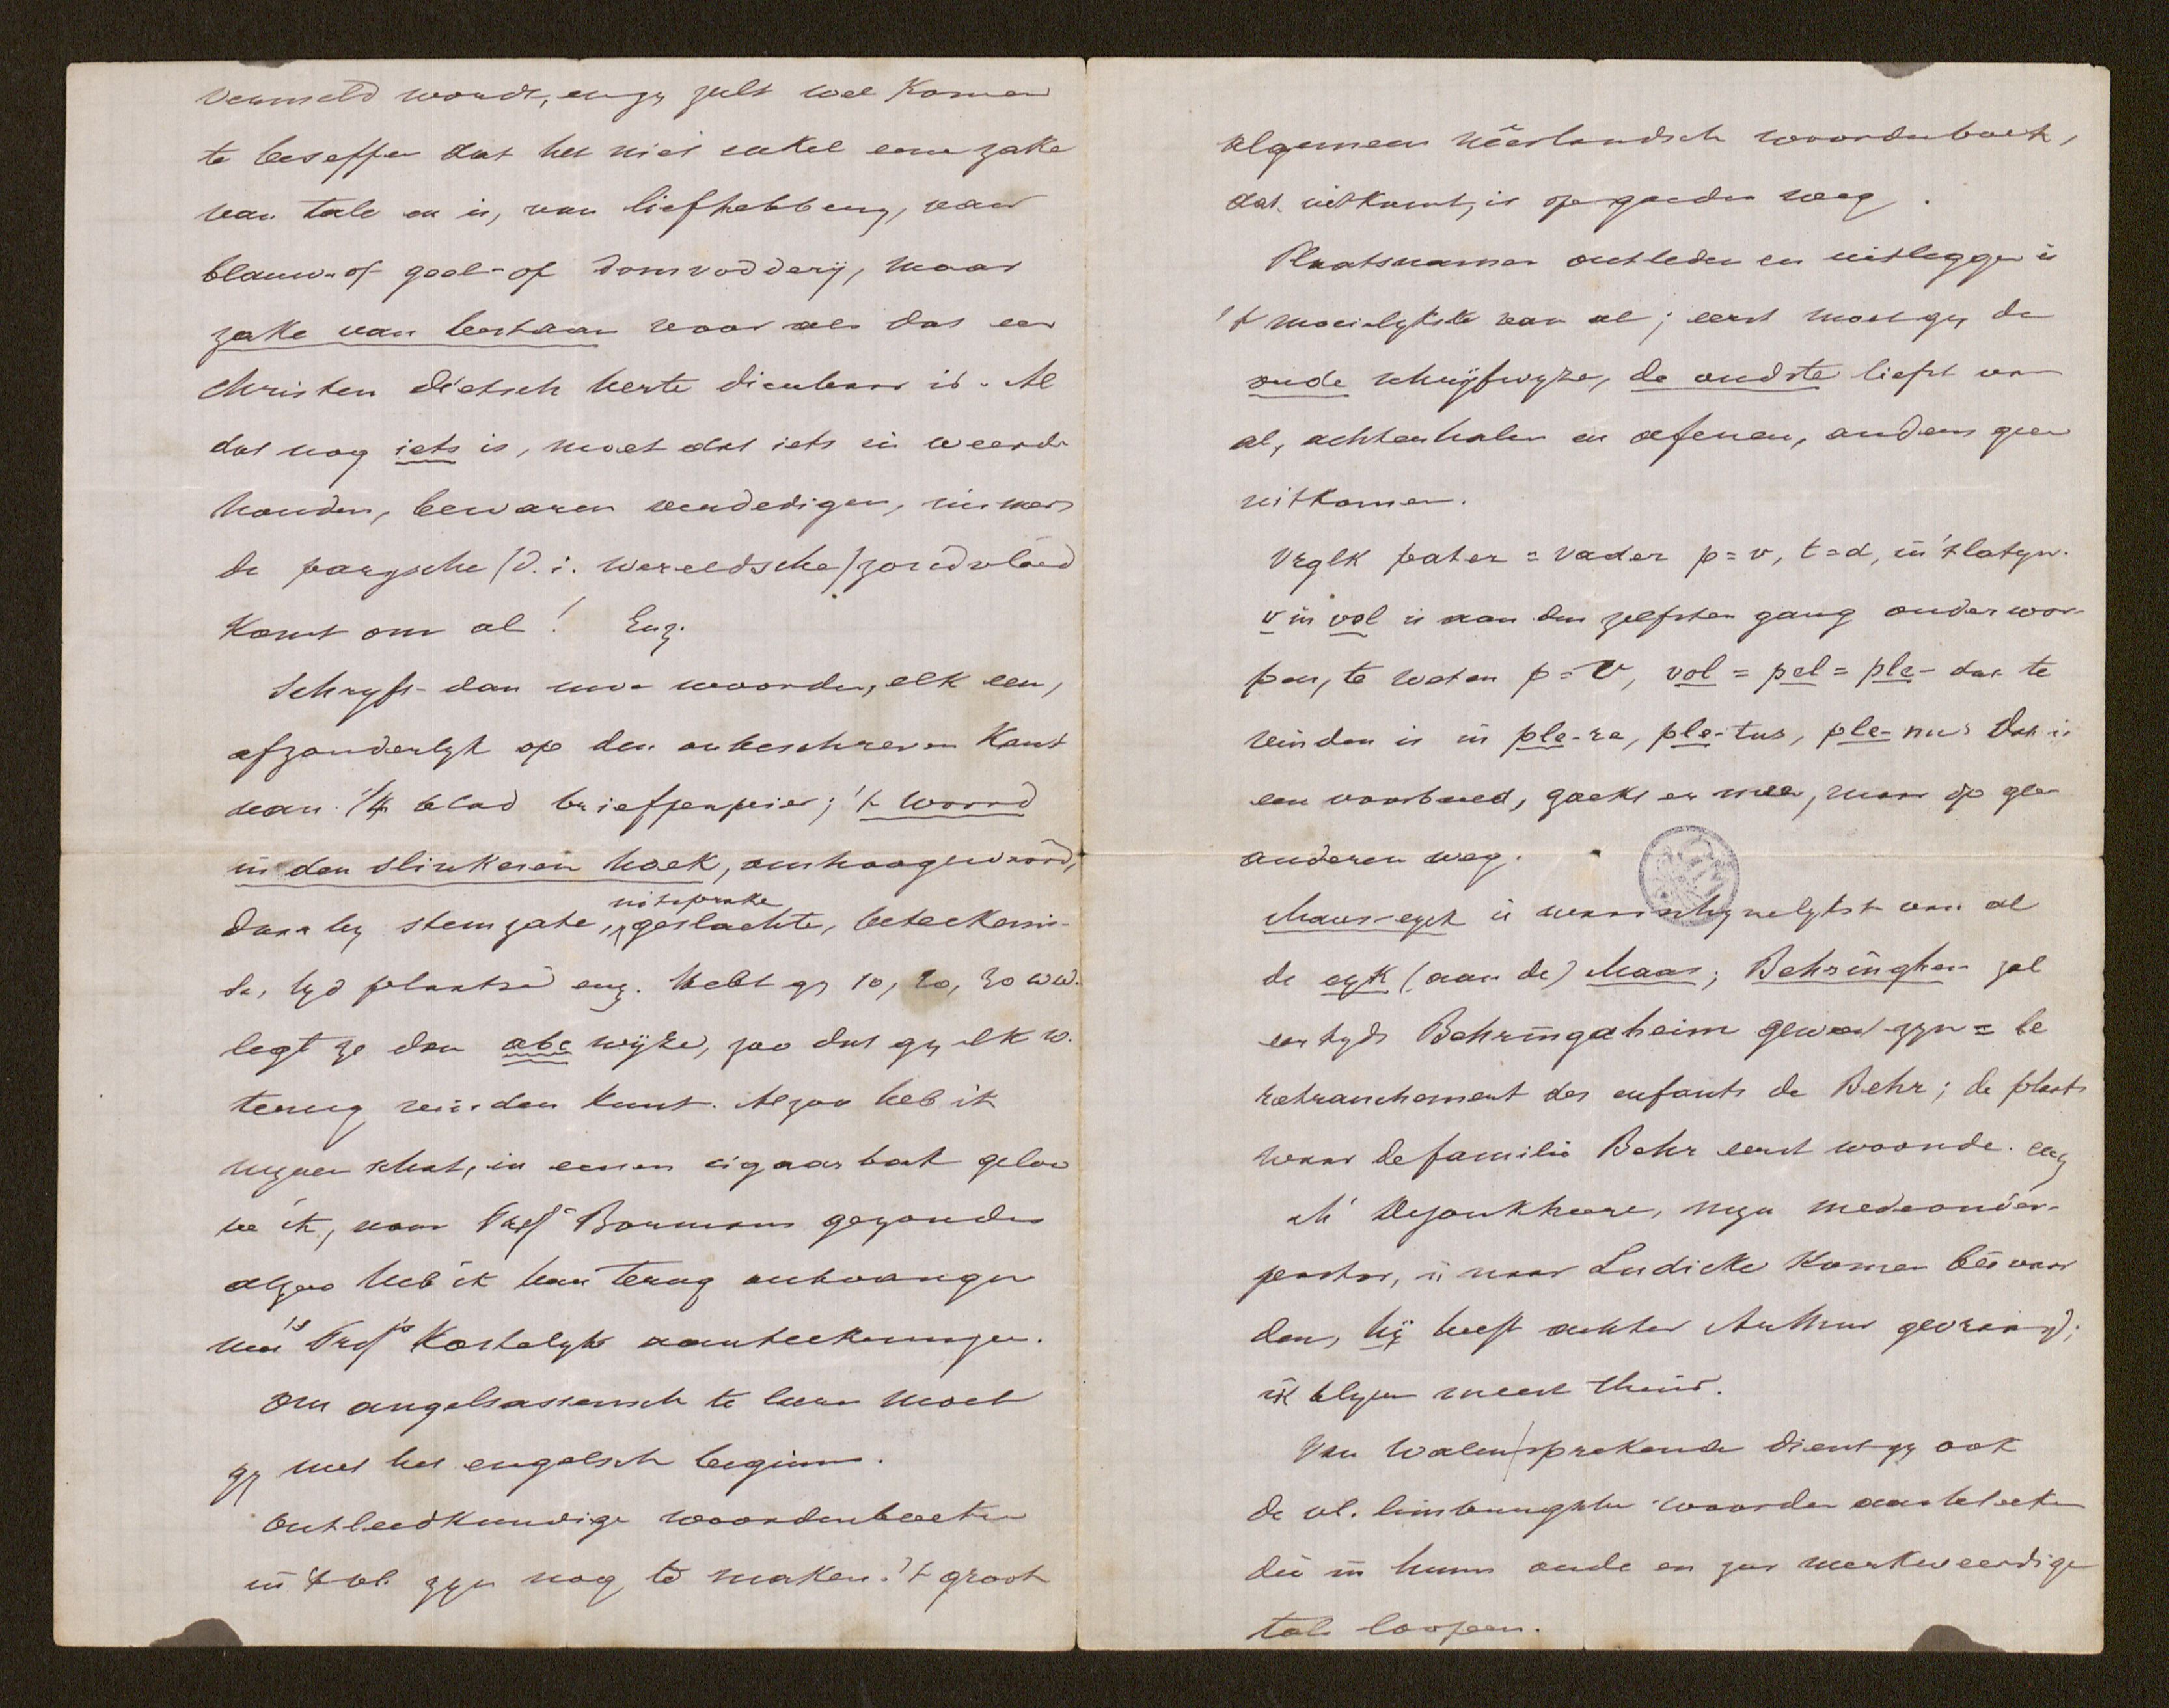 vermeld wordt, en gy zult wel komen
te beseffen dat het niet enkel eene zake
van tale en is, van liefhebbery, van
blauw- of geel- of domvodderij, maar
zake van bestaan voor al dat een
christen dietsch herte dierbaar is. Al
dat nog iets is, moet dat iets in weerde
houden, bewaren verdedigen, immers
de parysche (d.i. wereldsche) zondvloed
komt om al! Enz.
Schryft dan uwe woorden, elk een,
afzonderlyk op den onbeschreven kant
van 1/4 blad briefpampier; 't woord
in den slinkeren hoek, omhoogewaard,
daarby stemzate, uitsprake geslachte, beteekenis-
se, tyd plaatse enz. Hebt gy 10, 20, 30 ww.
legt ze dan abc wyze, zoo dat gy elk w.
terug vinden kunt. Alzoo heb ik
mynen schat, in eenen cigaarbak geloo
ve ik, naar Profr Bormans gezonden
alzoo heb ik hem terug ontvangen
met 's Profrs kostelyke aanteekeningen.
Om angelsassensch te leeren moet
gy met het engelsch beginnen.
Ontleedkundige woordenboeken
in 't vl. zyn nog te maken. 't groot
algemeen nêerlandsch woordenboek,
dat uitkomt, is op goeden weg.
Plaatsnamen ontleden en uitleggen is
't moeielykste van al; eerst moet gy de
oude schryfwyze, de oudste liefst van
al, achterhalen en oefenen, anders geen
uitkomen.
Vrglk pater = vader p=v, t=d, in 't latyn.
v in vol is aan den zelfsten gang onderwor-
pen, te weten p=v, vol = pel = ple- dat te
vinden is in ple-re, ple-tus, ple-nus Dat is
een voorbeeld, zoekt er meer, maar op geen
anderen weg.
Maes-eyck is waarschynelykst van al
de eyk (aan de) Maas; Behringhen zal
eertyds Behringaheim geweest zyn = le
retranchement des enfants de Behr; de plaats
waar de familie Behr eerst woonde. enz
Mr Dejonkheere, myn medeonder-
pastor, is naar Ludicke komen beêvaar
den, hij heeft achter Arthur gevraagd;
ik blyve meest thuis.
Van walensprekende dient gy ook
de vl. limburgsche woorden aanteeken
die in hunne oude en zeer merkweerdige
tale loopen.